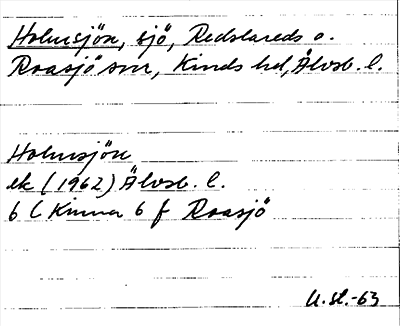 Holmsjön, sjö, Redslareds o.
Roasjö snr, Kinds hd, Älvsb. l.
Holmsjön
ek (1962) Älvsb. l.
6 C Kinna 6 f Roasjö
U.st.-63